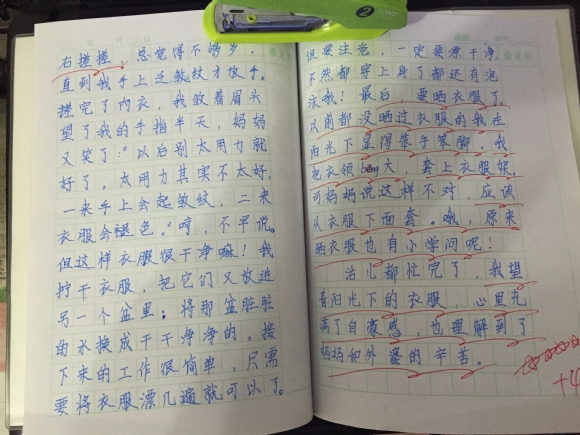 右搓搓，总觉得不够多，
直到我手上泛皱纹才放手。
搓完了内衣，我皱着眉头
望了我的手指半天，妈妈
又笑了：“以后别太用力就
好了。太用力其实不太好，
一来手上会起皱纹，二来
衣服会褪色。”哼，不早说。
但这样衣服很干净嘛！我
拧干衣服，把它们又放进
另一个盆里；将那盆脏脏
的水换成干干净净的。接
下来的工作很简单，只需
要将衣服漂几遍就可以了。
但要注意，一定要漂干净，
不然都穿上身了都还有泡
沫哦！最后，要晒衣服了，
以前都没晒过衣服的我在
阳光下显得笨手笨脚。我
把衣领 大，套上衣服架，
可妈妈说这样不对，应该
从衣服下面套。哦，原来
晒衣服也有小学问呢！
活儿都忙完了，我望
着阳光下的衣服，心里充
满了自豪感，也理解到了
妈妈和外婆的辛苦。